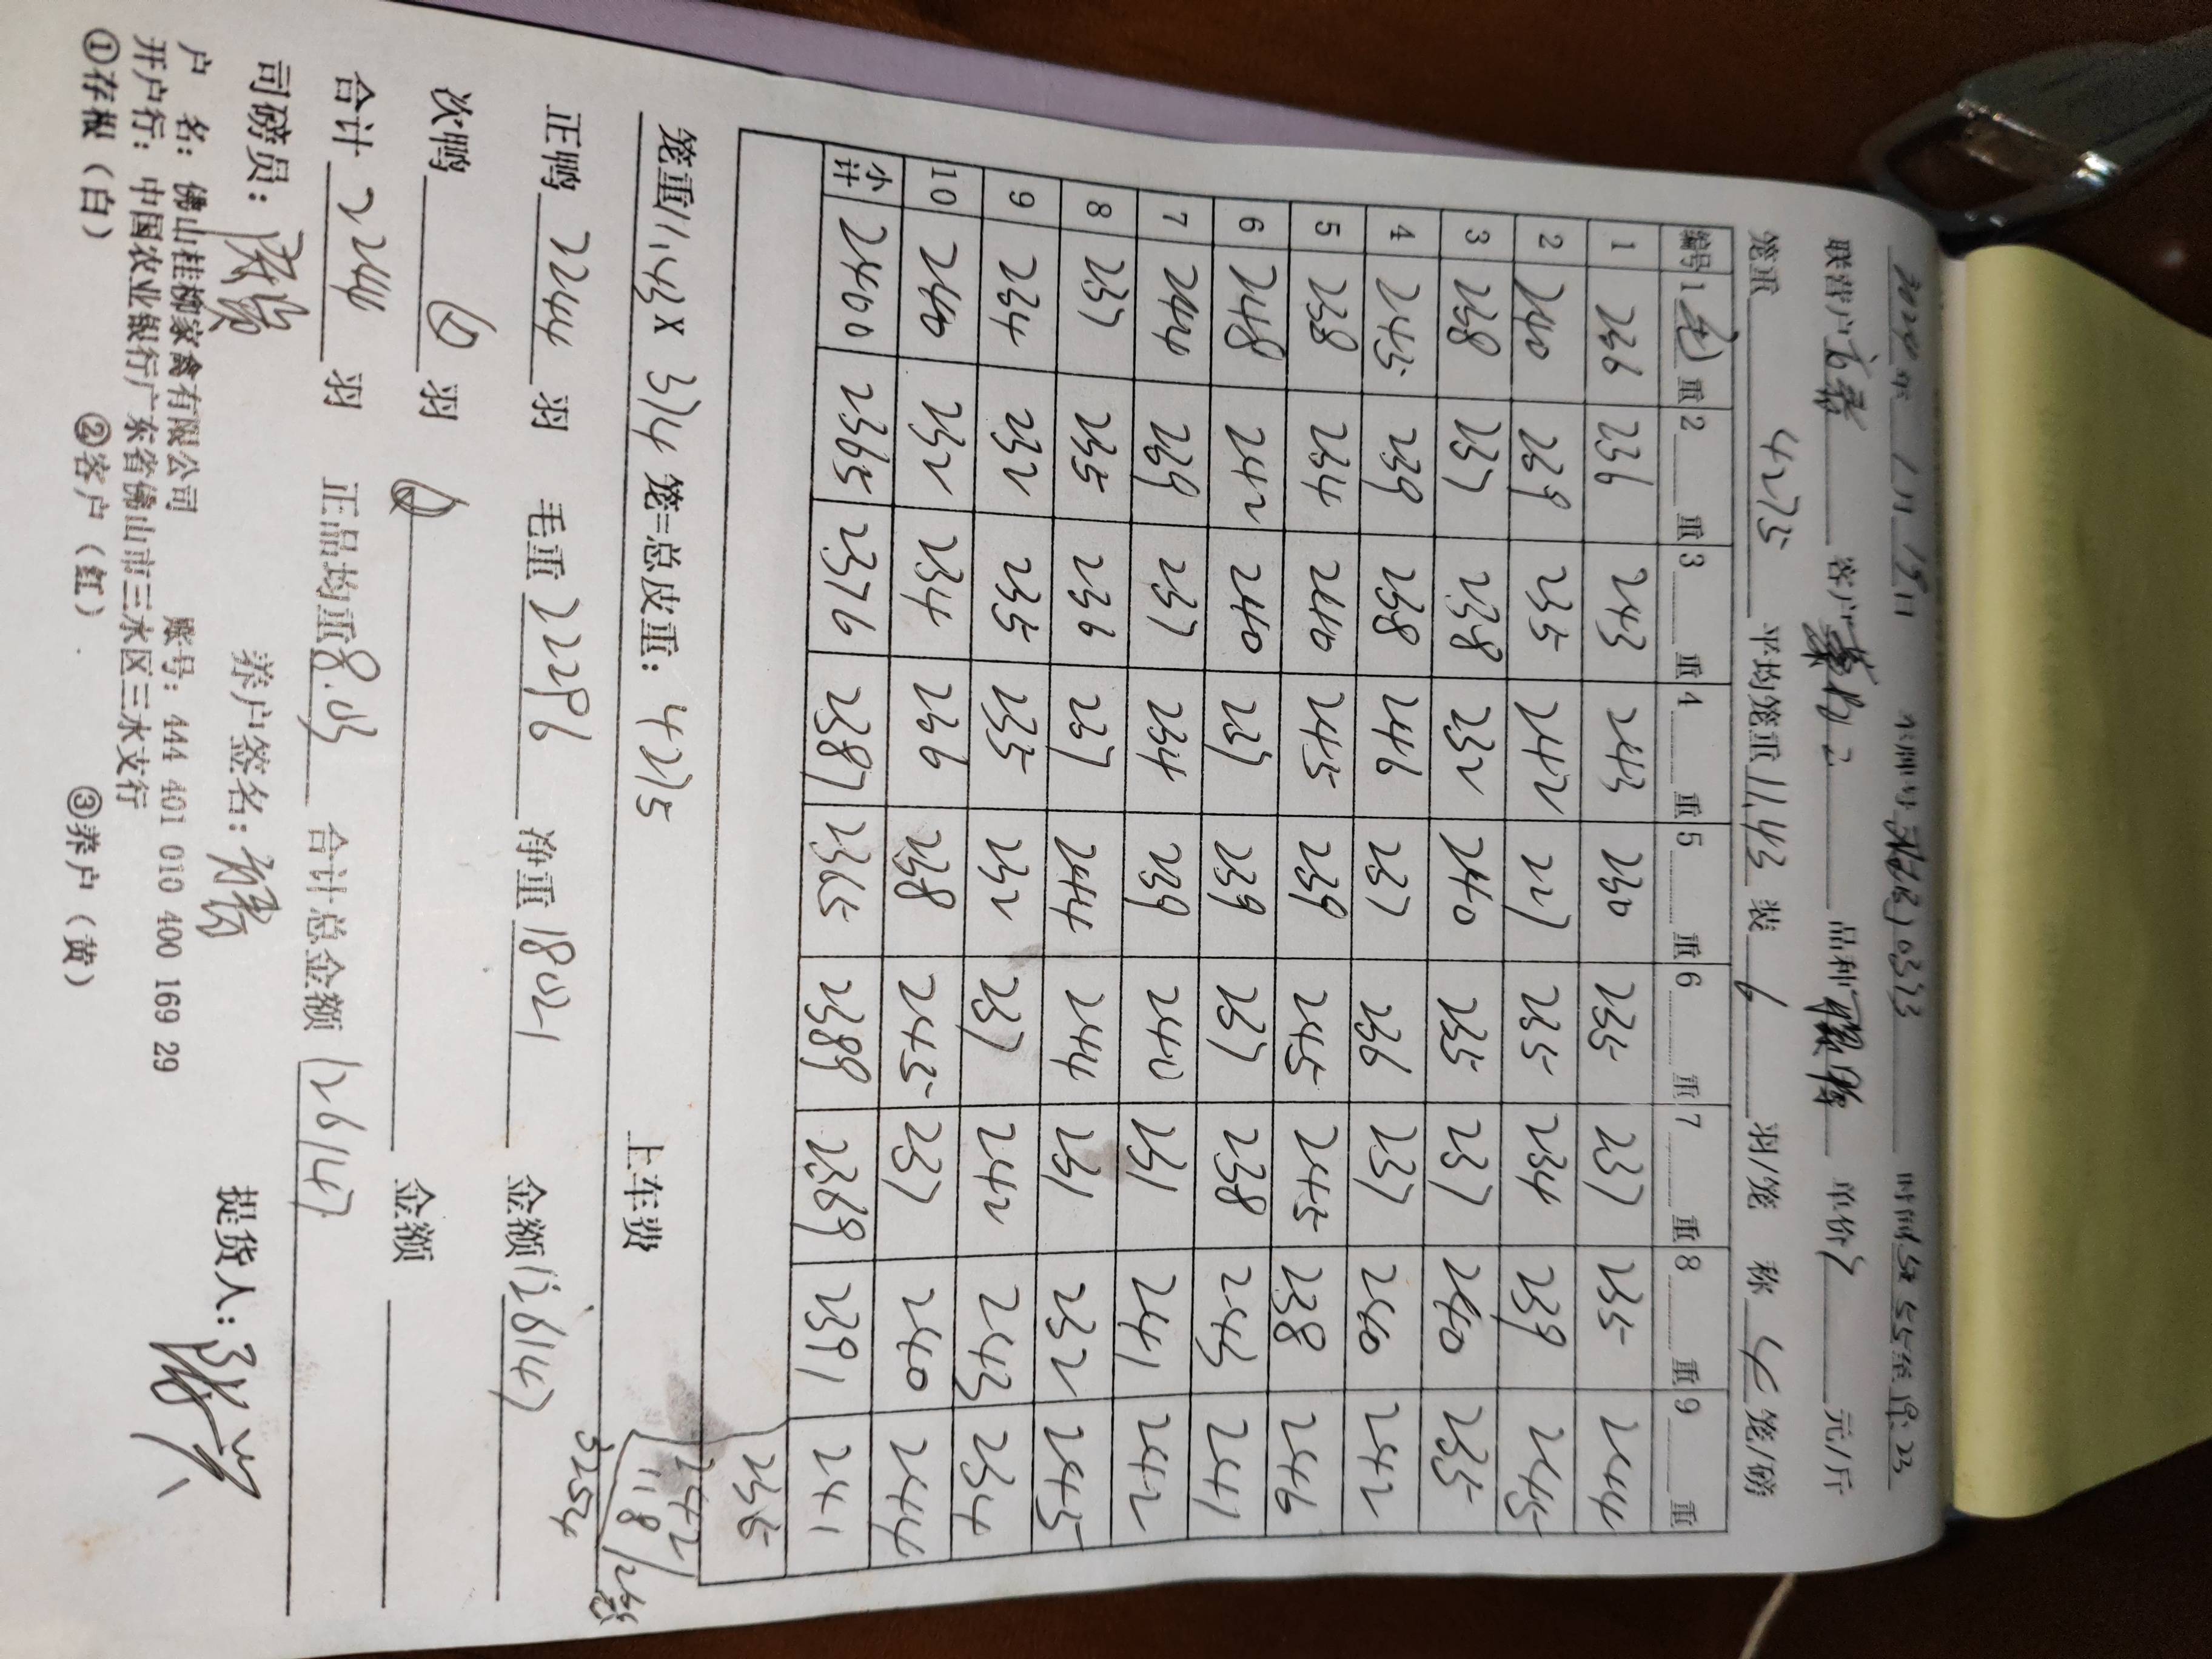 2024年 1月 15日 车牌号 时间 19:23
联营户 客户 品种 单价7 元/斤
笼重 4275 平均笼重 11.43 装 6 羽/笼 称 4 笼/磅
编号 1 重 2 重 3 重 4 重 5 重 6 重 7 重 8 重 9 重
1 236 236 243 243 230 235 237 235 244
2 240 239 235 242 227 235 234 239 245
3 238 237 238 232 240 235 237 240 235
4 245 239 238 246 237 236 237 240 242
5 238 234 240 245 239 245 245 238 246
6 248 242 240 237 239 237 238 243 241
7 244 239 237 234 239 240 231 241 242
8 237 235 236 237 244 244 231 232 245
9 234 232 235 235 232 237 242 243 234
10 240 232 234 236 238 245 237 240 244
小计 2400 2365 2376 2387 2365 2389 2369 2391 241
235
242
118/2笼
笼重 11.43 x 374 笼=总皮重: 4275 上车费
3254
正鸭 2244 羽 毛重 22296 净重 18021 金额 126147
次鸭 羽 金额
合计 2244 羽 正品均重 8.03 合计总金额 126147
司磅员: 养户签名: 提货人:
户 名: 佛山桂柳家禽有限公司 账号: 444 401 010 400 169 29
开户行: 中国农业银行广东省佛山市三水区三水支行
①存根(白) ②客户(红) ③养户(黄)